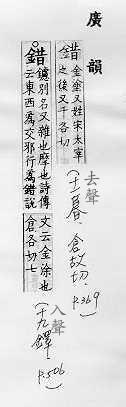 廣韻
錯 金塗又姓宋太宰
之後又千各切
去聲
(十一暮、倉故切、P.369)
錯 鑢別名又雜也摩也詩傳
云東西為交邪行為錯說
文云金涂也
倉各切七
入聲
(十九鐸、P.506)